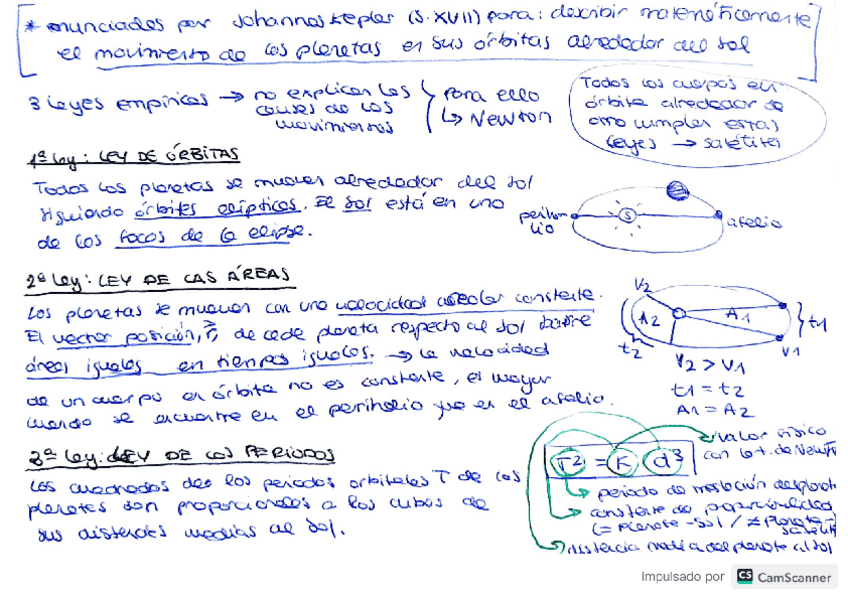 * enunciados por Johannes Kepler (S. XVII) para: describir matemáticamente
el movimiento de los planetas en sus órbitas alrededor del sol
3 leyes empíricas → no explican las
causas de los
movimientos
para ello
↳ Newton
Todos los cuerpos en
órbita alrededor de
otro cumplen estas
leyes → satélites
1ª Ley: LEY DE ÓRBITAS
Todos los planetas se mueven alrededor del sol
siguiendo órbitas elípticas. El sol está en uno
de los focos de la elipse.
perihe
lio
S
afelio
2ª Ley: LEY DE LAS ÁREAS
Los planetas se mueven con una velocidad areolar constante.
El vector posición, r, de cada planeta respecto al sol barre
áreas iguales en tiempos iguales. → la velocidad
de un cuerpo en órbita no es constante, es mayor
cuando se encuentre en el perihelio que en el afelio.
V2
A2
A1
t1
t2
V1
V2 > V1
t1 = t2
A1 = A2
3ª Ley: LEY DE LOS PERIODOS
Los cuadrados de los periodos orbitales T de los
planetas son proporcionales a los cubos de
sus distancias medias al sol.
T² = K d³
valor físico
con la t. de Newton
↳ periodo de traslación del planeta
→ constante de proporcionalidad
(= planeta - sol / ≠ planeta -
satélite
↳ distancia media del planeta al sol
Impulsado por CS CamScanner